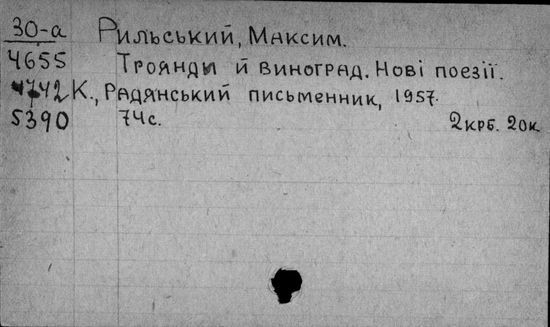 30-а Рильський, Максим.
4655 Троянди й виноград. Нові поезії.
4742 К., Радянський письменник, 1957.
5390 74с. 2крб. 20к